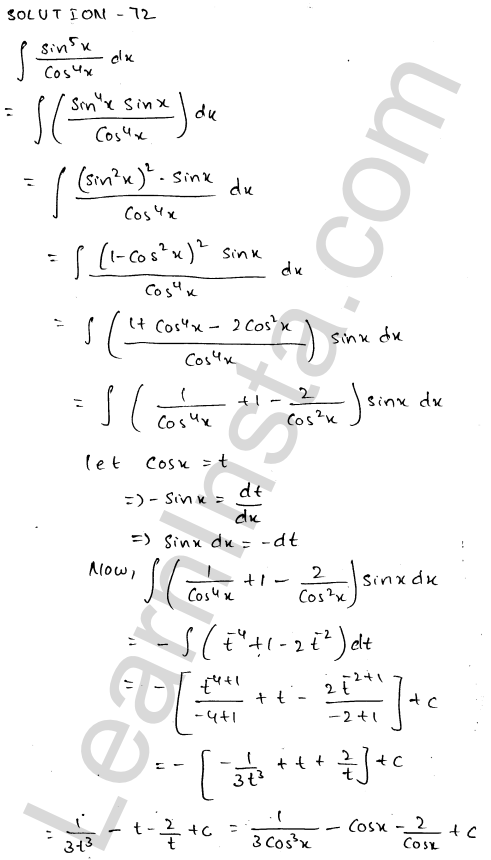 SOLUTION - 72
∫ sin⁵x / cos⁴x dx
= ∫ ( sin⁴x sinx / cos⁴x ) dx
= ∫ (sin²x)² - sinx / cos⁴x dx
= ∫ (1-cos²x)² sinx / cos⁴x dx
= ∫ ( 1+ cos⁴x - 2cos²x / cos⁴x ) sinx dx
= ∫ ( 1 / cos⁴x +1 - 2 / cos²x ) sinx dx
let cosx = t
=> - sinx = dt / dx
=> sinx dx = -dt
Now, ∫ ( 1 / cos⁴x +1 - 2 / cos²x ) sinx dx
= - ∫ ( t⁻⁴ +1 - 2 t⁻² ) dt
= - [ t⁻⁴⁺¹ / -4+1 + t - 2t⁻²⁺¹ / -2+1 ] + c
= - [ - 1 / 3t³ + t + 2 / t ] + c
= 1 / 3t³ - t - 2 / t + c = 1 / 3cos³x - cosx - 2 / cosx + c
LearnInsta.com